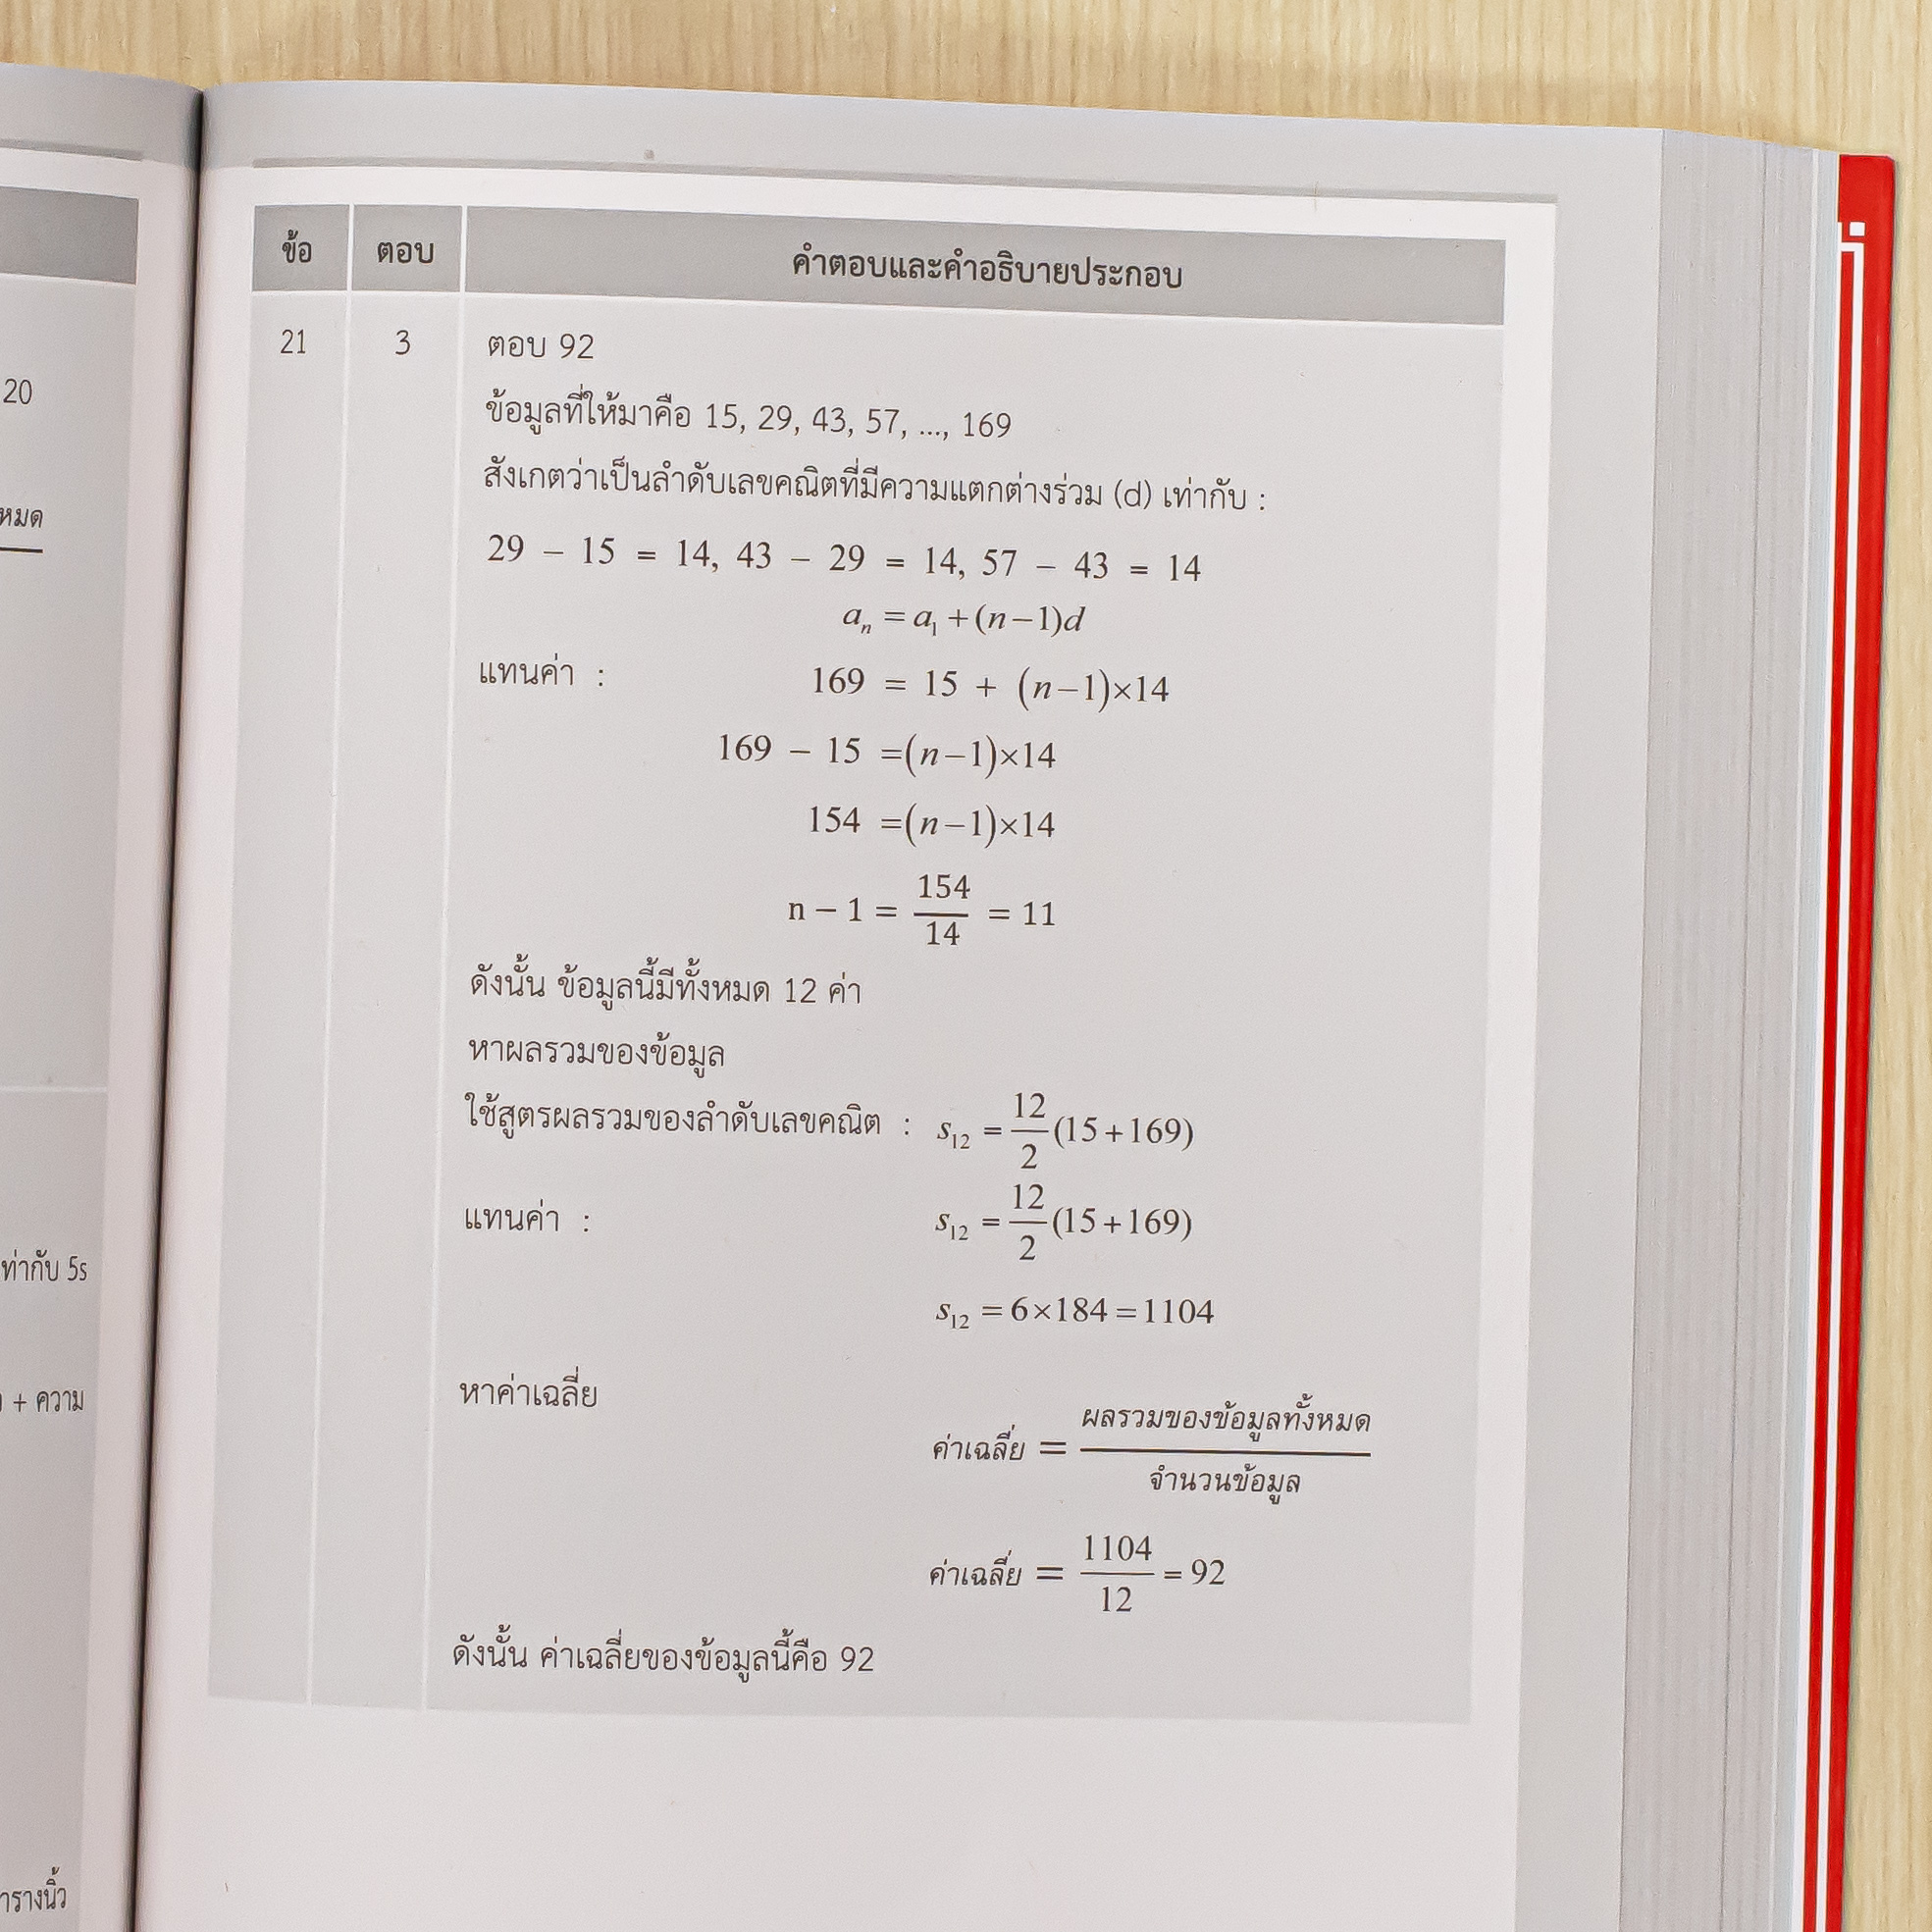 20
หมด
ท่ากับ 5s
+ ความ
ารางนิ้ว
ข้อ ตอบ คำตอบและคำอธิบายประกอบ
21 3 ตอบ 92
ข้อมูลที่ให้มาคือ 15, 29, 43, 57, ..., 169
สังเกตว่าเป็นลำดับเลขคณิตที่มีความแตกต่างร่วม (d) เท่ากับ :
29 – 15 = 14, 43 – 29 = 14, 57 – 43 = 14
aₙ = a₁ + (n – 1)d
แทนค่า : 169 = 15 + (n – 1)×14
169 – 15 =(n – 1)×14
154 =(n – 1)×14
n – 1 = 154/14 = 11
ดังนั้น ข้อมูลนี้มีทั้งหมด 12 ค่า
หาผลรวมของข้อมูล
ใช้สูตรผลรวมของลำดับเลขคณิต : s₁₂ = 12/2 (15 + 169)
แทนค่า : s₁₂ = 12/2 (15 + 169)
s₁₂ = 6×184 = 1104
หาค่าเฉลี่ย
ค่าเฉลี่ย = ผลรวมของข้อมูลทั้งหมด/จำนวนข้อมูล
ค่าเฉลี่ย = 1104/12 = 92
ดังนั้น ค่าเฉลี่ยของข้อมูลนี้คือ 92